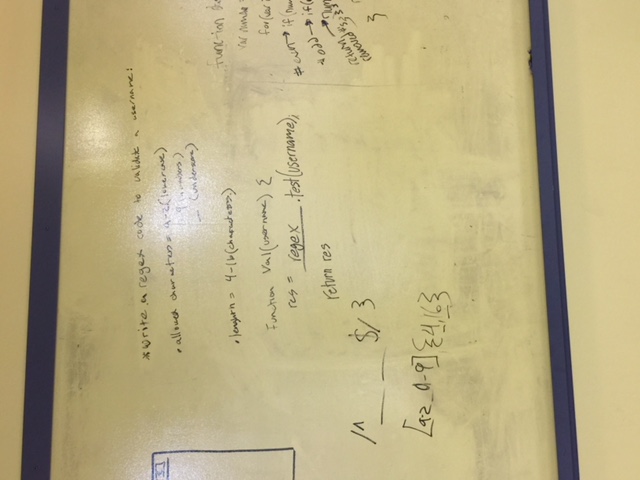 *Write a regex code to validate a username:
• allowed characters = a-z (lowercase)
9 (numbers)
_ (underscore)
• length = 4-16 (characters)
function Val(username) {
res = regex .test(username);
return res
/^ __ __ $/ }
[a-z_0-9]{4,16}
function
var
for(var i
# even → if(num
* odd → if(
return
}